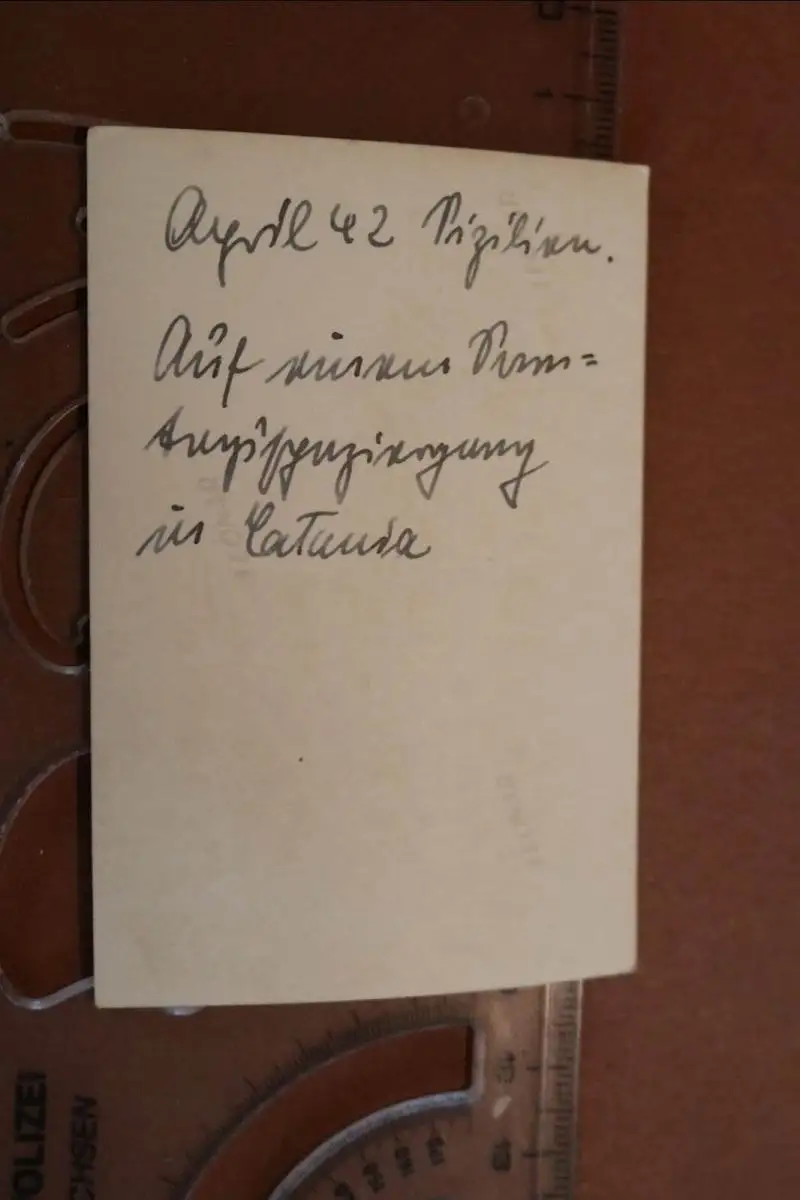 April 42 Sizilien.
Auf einem Sonn=
tagsspaziergang
in Catania
0
1
POLIZEI
CHSEN